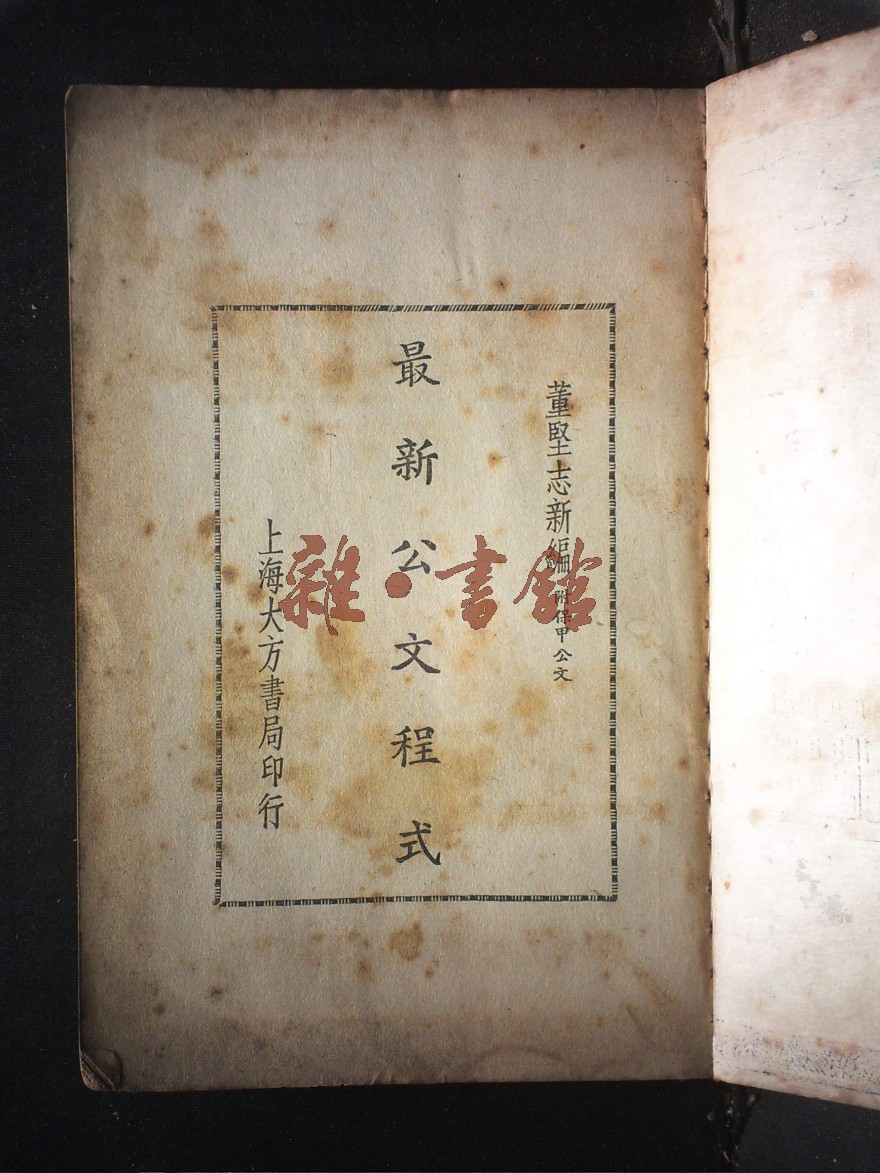 董堅志新編 附保甲公文
最新公文程式
上海大方書局印行
雜·書館